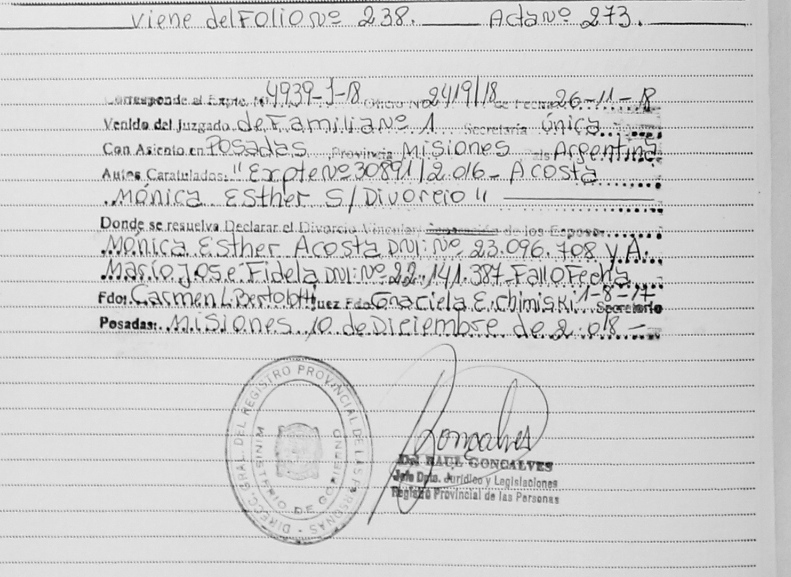 viene del Folio Nº 238. Acta Nº 273.
Corresponde al Expte. Nº 4939-J-18 Oficio Nº 2419/18 de Fecha 26-11-18
Venido del Juzgado de Familia Nº 1 Secretaria única
Con Asiento en Posadas Provincia Misiones País Argentina
Autos Caratulados: "Expte Nº 30891/2.016- Acosta
Mónica Esther S/Divorcio"
Donde se resuelva Declarar el Divorcio Vincular, de los Esposos
Mónica Esther Acosta DNI: Nº 23.096.708 y A.
Mario José Fidela DNI: Nº 22.141.387 Fallo Fecha
Fdo: Carmen L. Bertolotti Juez Fdo. Graciela E. Chimiski 1-8-17 Secretario
Posadas: Misiones, 10 de Diciembre de 2.018-
DIRECC. GRAL. DEL REGISTRO PROVINCIAL DE LAS PERSONAS
MINISTERIO DE GOBIERNO
Goncalves
Dr. RAUL GONCALVES
Jefe Dpto. Jurídico y Legislaciones
Registro Provincial de las Personas